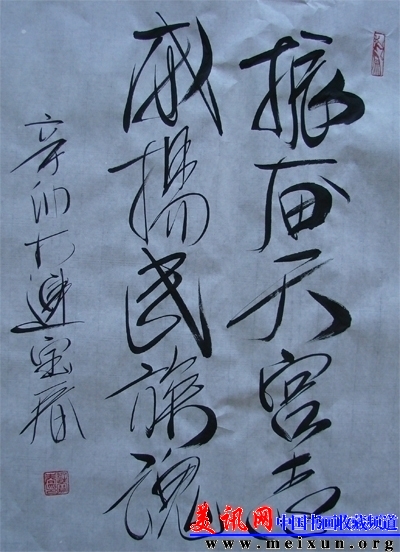 振奋天宫
威揚民族魂
辛卯大連宝春
美讯网 中国书画收藏频道
www.meixun.org